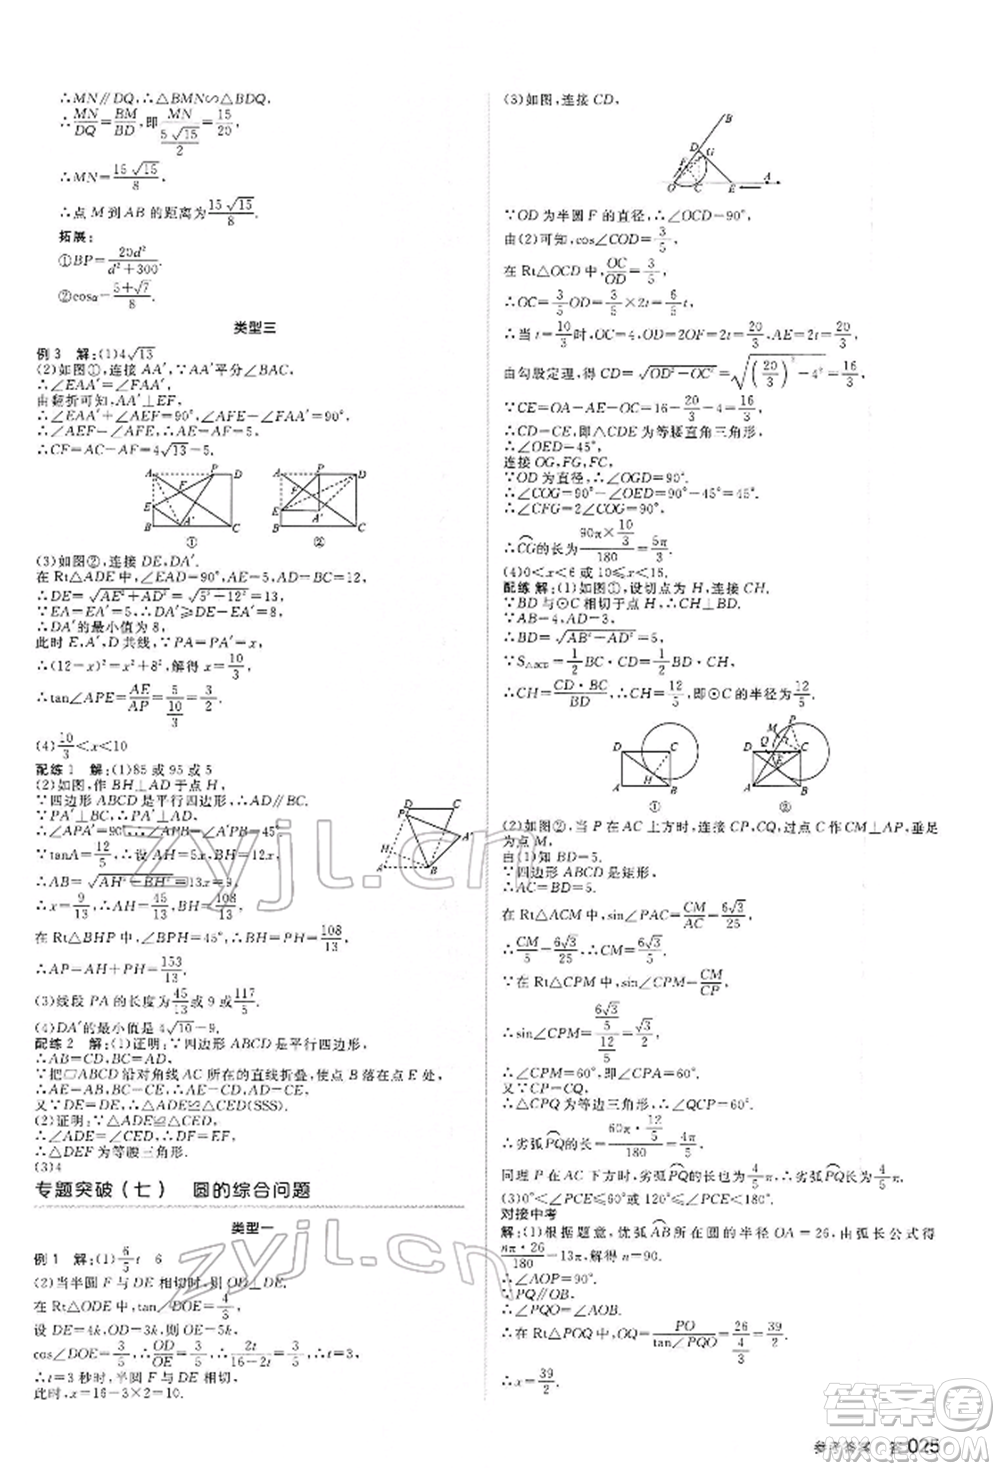 ∴MN∥DQ,∴△BMN∽△BDQ,
∴MN/DQ=BM/BD,即MN/(5√15/2)=15/20,
∴MN=15√15/8.
∴点 M 到 AB 的距离为15√15/8.
拓展:
①BP=20d²/(d²+300).
②cosα=(5+√7)/8.
类型三
例 3 解:(1)4√13
(2)如图①,连接 AA′,∵AA′平分∠BAC,
∴∠EAA′=∠FAA′.
由翻折可知,AA′⊥EF,
∴∠EAA′+∠AEF=90°,∠AFE+∠FAA′=90°,
∴∠AEF=∠AFE,∴AF=AE=5,
∴CF=AC-AF=4√13-5.
A P D E B A′ C ①
A P D E A′ B C ②
(3)如图②,连接 DE,DA′.
在 Rt△ADE 中,∠EAD=90°,AE=5,AD=12,
∴DE=√(AE²+AD²)=√(5²+12²)=13.
∵EA=EA′=5,∴DA′≥DE-EA′=8,
∴DA′的最小值为 8,
此时,E,A′,D 共线,∵PA=PA′=x,
∴(12-x)²=x²+8²,解得 x=10/3,
∴tan∠APE=AE/AP=5/(10/3)=3/2.
(4)10/3<x<10
配练 1 解:(1)85 或 95 或 5
(2)如图,作 BH⊥AD 于点 H,
∵四边形 ABCD 是平行四边形,∴AD∥BC.
∵PA′⊥BC,∴PA′⊥AD,
∴∠APA′=90°,
∵tanA=12/5,∴设 AH=5x,BH=12x,
∴AB=√(AH²+BH²)=13x=9,
∴x=9/13,∴AH=45/13,BH=108/13,
在 Rt△BHP 中,∠BPH=45°,∴BH=PH=108/13,
∴AP=AH+PH=153/13.
D C P A′ H A B
(3)线段 PA 的长度为45/13或117/5.
(4)DA′的最小值是 4√10-9.
配练 2 解:(1)证明:∵四边形 ABCD 是平行四边形,
∴AB=CD,BC=AD.
∵把▱ABCD 沿对角线 AC 所在的直线折叠,使点 B 落在点 E 处,
∴AE=AB=CD,CE=BC=AD.
又∵DE=ED,∴△ADE≌△CED(SSS).
(2)证明:∵△ADE≌△CED,
∴∠ADE=∠CED,∴EF=DF,
∴△DEF 为等腰三角形.
(3)4
专题突破(七) 圆的综合问题
类型一
例 1 解:(1)6/5t 6
(2)当半圆 F 与 DE 相切时,则 OB⊥DE.
在 Rt△ODE 中,tan∠DOE=4/3,
设 DE=4k,OD=3k,则 OE=5k,
cos∠DOE=3/5=OD/OE=2t/(16-2t)=3/5,∴t=3,
∴t=3 秒时,半圆 F 与 DE 相切,
此时,x=16-3×2=10.
(3)如图,连接 CD,
B D G F O C E A
∵OD 为半圆 F 的直径,∴∠OCD=90°,
由(2)可知,cos∠COD=3/5,
在 Rt△OCD 中,OC/OD=3/5,
∴OC=3/5OD=3/5×2t=6/5t,
∴当 t=10/3时,OC=4,OD=2OF=2t=20/3,AE=2t=20/3,
由勾股定理,得 CD=√(OD²-OC²)=√((20/3)²-4²)=16/3,
∵CE=OA-AE-OC=16-20/3-4=16/3,
∴CD=CE,即△CDE 为等腰直角三角形,
∴∠OED=45°,
连接 OG,FG,FC,
∵OD 为直径,∴∠OGD=90°,
∴∠COG=90°-∠OED=90°-45°=45°,
∴∠CFG=2∠COG=90°,
∴CG的长为(90π×10/3)/180=5π/3.
(4)0<x<6 或 10≤x<16.
配练 解:(1)如图①,设切点为 H,连接 CH,
∵BD 与⊙C 相切于点 H,∴CH⊥BD.
∵AB=4,AD=3,
∴BD=√(AB²+AD²)=5,
∵S△BCD=1/2BC·CD=1/2BD·CH,
∴CH=CD·BC/BD,∴CH=12/5,即⊙C 的半径为12/5.
D C H A B ①
P M D Q C E A B ②
(2)如图②,当 P 在 AC 上方时,连接 CP,CQ,过点 C 作CM⊥AP,垂足
为点 M,
由(1)知 BD=5,
∵四边形 ABCD 是矩形,
∴AC=BD=5.
∵在 Rt△ACM 中,sin∠PAC=CM/AC=6√3/25,
∴CM/5=6√3/25,∴CM=6√3/5.
∵在 Rt△CPM 中,sin∠CPM=CM/CP,
∴sin∠CPM=(6√3/5)/(12/5)=√3/2,
∴∠CPM=60°,
又∵CP=CQ,
∴△CPQ 为等边三角形,∴∠PCQ=60°,
∴劣弧PQ的长=(60π·12/5)/180=4/5π,
同理 P 在 AC 下方时,劣弧PQ的长也为4/5π.
(3)0°<∠PCE≤60° 或 120°≤∠PCE<180°.
对接中考
解:(1)根据题意,优弧AB所在圆的半径 OA=26,由弧长公式得
nπ·26/180=13π,解得 n=90,
∴∠AOP=90°.
∵PQ∥OB,
∴∠PQO=∠AOB.
∴在 Rt△POQ 中,OQ=PO/tan∠PQO=26/(4/3)=39/2,
∴x=39/2.
zyjl.cn
zyjl.cn
答案圈
MXQE.COM
参考答案 答025